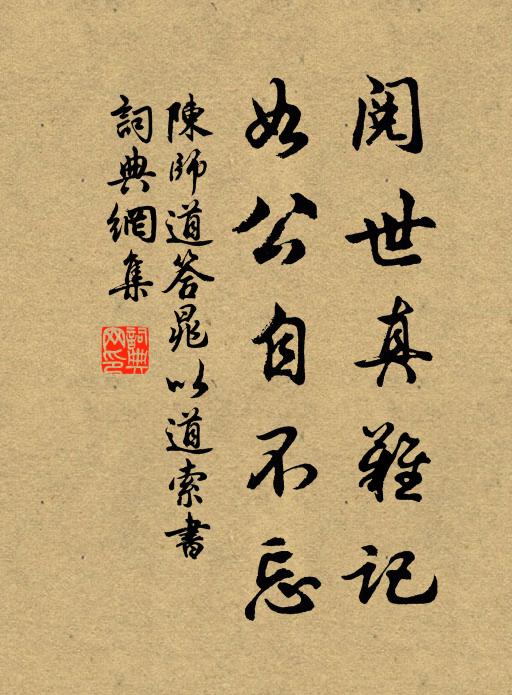 閱世真難記
如公自不忘
陳師道答晁以道索書
詞典網集
詞典网印